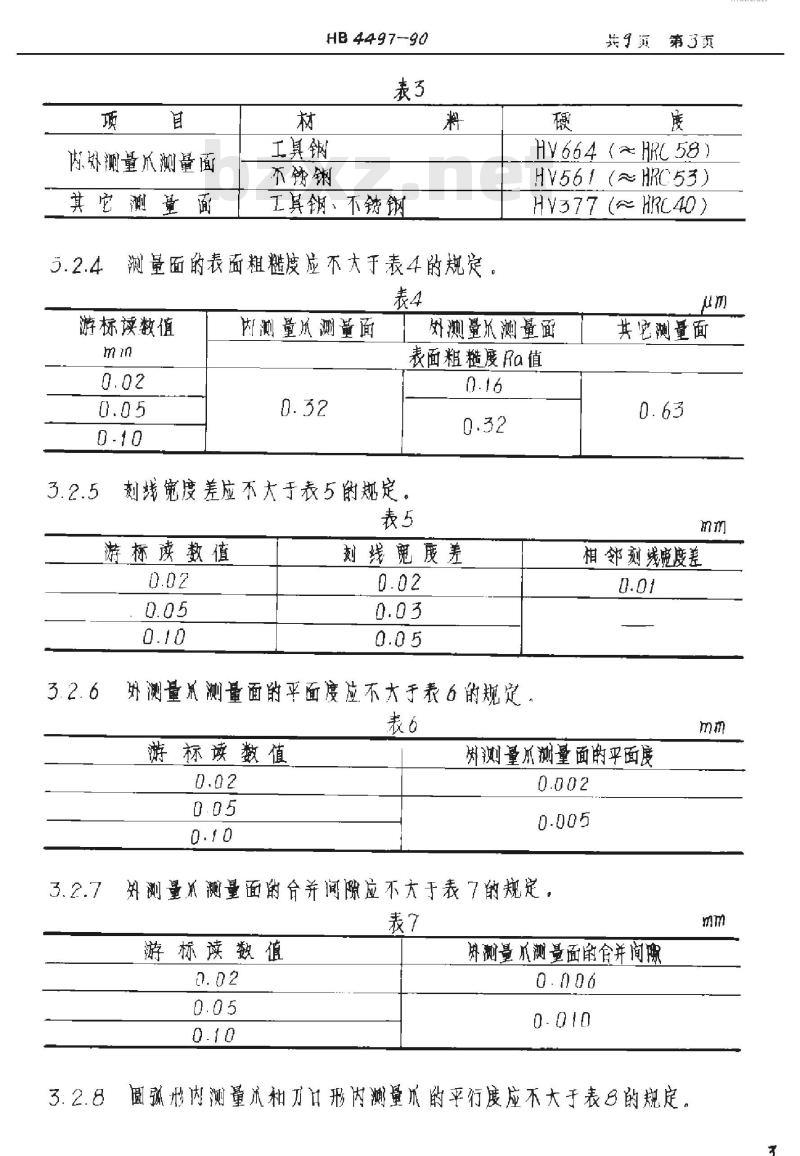 HB 4497—90 共9页 第3页
表3
项 目 材 料 硬 度
内外测量爪测量面 工具钢 HV664 (≈HRC 58)
不锈钢 HV561 (≈HRC 53)
其它测量面 工具钢、不锈钢 HV377 (≈HRC40)
3.2.4 测量面的表面粗糙度应不大于表4的规定。
表4 μm
游标读数值 内测量爪测量面 外测量爪测量面 其它测量面
mm 表面粗糙度Ra值
0.02 0.16
0.05 0.32 0.63
0.10 0.32
3.2.5 刻线宽度差应不大于表5的规定。
表5 mm
游标读数值 刻线宽度差 相邻刻线宽度差
0.02 0.02 0.01
0.05 0.03 —
0.10 0.05
3.2.6 外测量爪测量面的平面度应不大于表6的规定。
表6 mm
游标读数值 外测量爪测量面的平面度
0.02 0.002
0.05 0.005
0.10
3.2.7 外测量爪测量面的合并间隙应不大于表7的规定。
表7 mm
游标读数值 外测量爪测量面的合并间隙
0.02 0.006
0.05 0.010
0.10
3.2.8 圆弧形内测量爪和刀口形内测量爪的平行度应不大于表8的规定。
3
bzxz.net